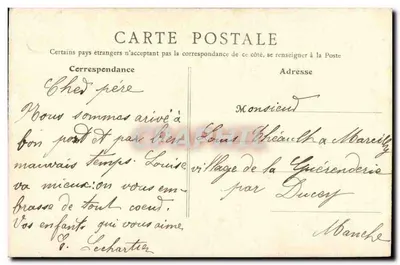 CARTE POSTALE
Certains pays étrangers n'acceptant pas la correspondance de ce côté, se renseigner à la Poste
Correspondance
Adresse
Cher père
Nous sommes arivé à
bon port et par bien
mauvais temps. Louise
va mieux: on vous em-
brasse de tout coeur.
Vos enfants qui vous aime
Lechartier
Monsieur
Louis Théault à Marcilly
village de la Guérenderie
par Ducey
Manche